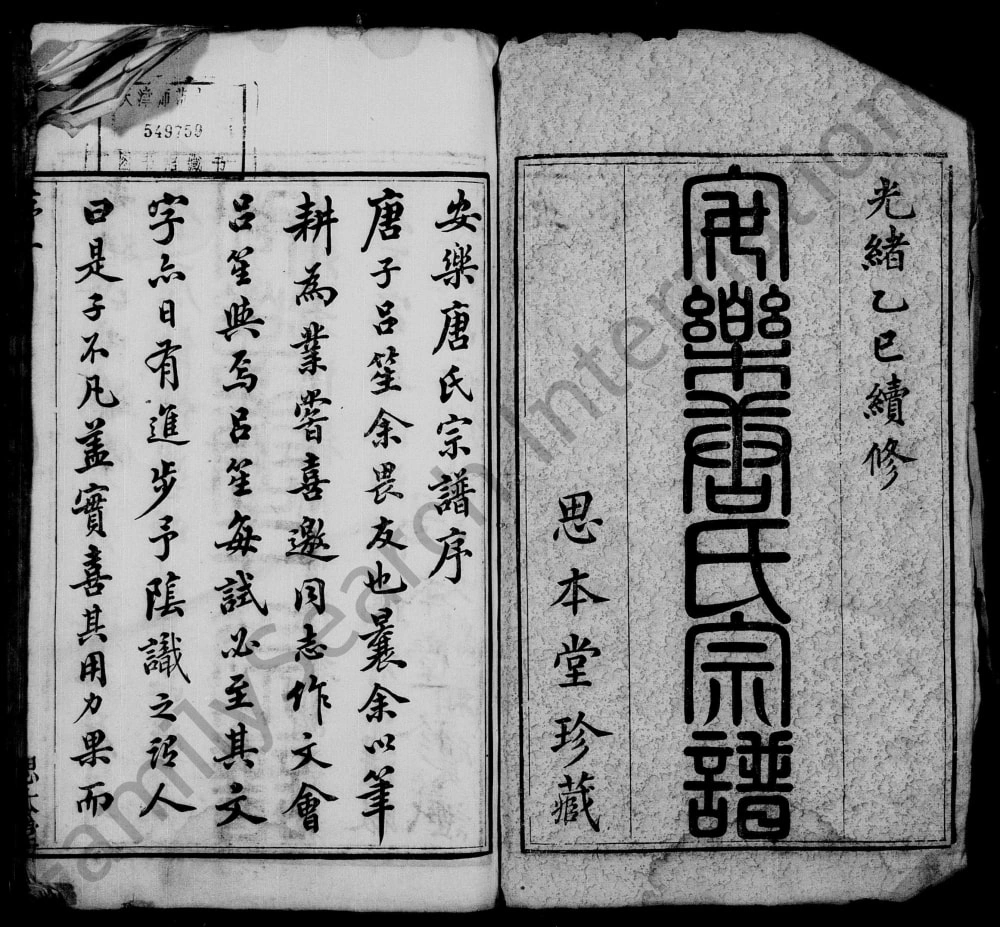 光緒乙巳續修
安樂唐氏宗譜
思本堂珍藏
安樂唐氏宗譜序
唐子呂笙余畏友也曩余以筆
耕為業嘗喜邀同志作文會
呂笙與焉呂笙每試必至其文
字亦日有進步予陰識之謂人
曰是子不凡蓋實喜其用力果而
549759
FamilySearch International